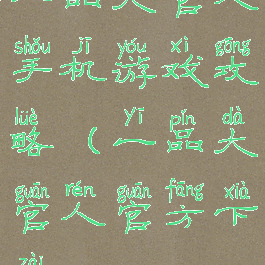 shǒu jī yóu xì gōng
手机游戏攻
lüè yī pín dà
略(一品大
guān rén guān fāng xià
官人官方下
zài